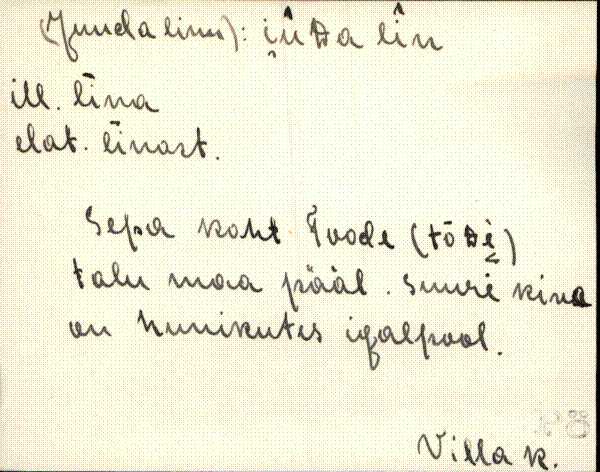 (Juuda linn): i̮ûDa lîn
ill. līna
elat. līnast.
Sepa koht Toode (tōDè)
talu maa pääl. Suuri kiva
on hunikutes igalpool.
Villa k.